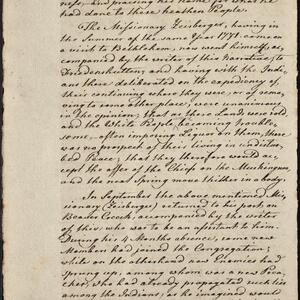 ness, and praising his name for what he
had done to these heathen People.
The Missionary Zeisberger, having in
the Summer of the same Year 1771. come on
a visit to Bethlehem, now went himself, ac-
companied by the writer of this Narrative, to
Friedenshutten; and having with the Indi-
ans there deliberated on the expediency of
their continuing where they were, or of remo-
ving to some other place; were unanimous
in the opinion, that as these Lands were sold,
and the White People becoming trouble-
some, often imposing Liquor on them, there
was no prospect of their living in undistur-
bed Peace; that they therefore would ac-
cept the offer of the Chiefs on the Muskingum,
and the next Spring move thither in a body.
In September the above mentioned Mis-
sionary (Zeisberger) returned to his post, on
Beaver Creek, accompanied by the writer
of this, who was to be an assistant to them.
During his 4 Months absence, some new
Members had joined the Congregation;
while on the otherhand new Enemies had
sprung up, among whom was a new Prea-
cher, who had already propagated such lies
among the Indians, as he imagined would